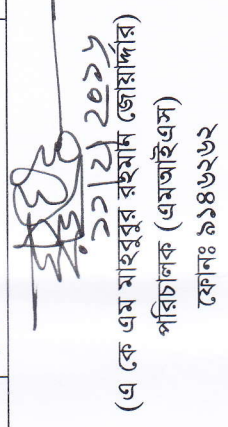 (এ কে এম মাহবুবুর রহমান জোয়ার্দ্দার)
পরিচালক (এমআইএস)
ফোনঃ ৯১৪৬২৬২